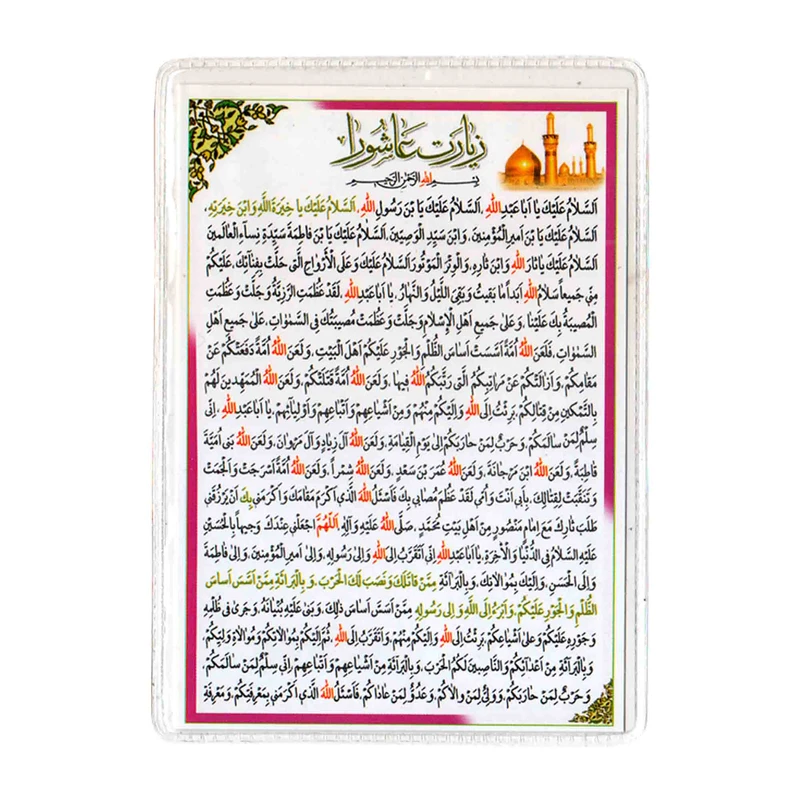 زیارت عاشورا
بِسْمِ اللهِ الرَّحْمٰنِ الرَّحِيمِ
اَلسَّلامُ عَلَيْكَ يا اَبا عَبْدِ اللهِ، اَلسَّلامُ عَلَيْكَ يَا بْنَ رَسُولِ اللهِ، اَلسَّلامُ عَلَيْكَ يا خِيَرَةَ اللهِ وَابْنَ خِيَرَتِهِ،
اَلسَّلامُ عَلَيْكَ يَا بْنَ اَميرِ الْمُؤْمِنينَ، وَابْنَ سَيِّدِ الْوَصِيّينَ، اَلسَّلامُ عَلَيْكَ يَا بْنَ فاطِمَةَ سَيِّدَةِ نِسآءِ الْعالَمينَ
اَلسَّلامُ عَلَيْكَ يا ثارَ اللهِ وَابْنَ ثارِهِ، وَالْوِتْرَ الْمَوْتُورَ اَلسَّلامُ عَلَيْكَ وَعَلَى الْأَرْواحِ الَّتى حَلَّتْ بِفِنائِكَ، عَلَيْكُمْ
مِنّى جَميعاً سَلامُ اللهِ اَبَداً ما بَقيتُ وَبَقِىَ اللَّيْلُ وَالنَّهارُ، يا اَبا عَبْدِ اللهِ، لَقَدْ عَظُمَتِ الرَّزِيَّةُ وَجَلَّتْ وَعَظُمَتِ
الْمُصيبَةُ بِكَ عَلَيْنا، وَعَلى جَميعِ اَهْلِ الْاِسْلامِ وَجَلَّتْ وَعَظُمَتْ مُصيبَتُكَ فِى السَّمٰواتِ، عَلى جَميعِ اَهْلِ
السَّمٰواتِ، فَلَعَنَ اللهُ اُمَّةً اَسَّسَتْ اَساسَ الظُّلْمِ وَالْجَوْرِ عَلَيْكُمْ اَهْلَ الْبَيْتِ، وَلَعَنَ اللهُ اُمَّةً دَفَعَتْكُمْ عَنْ
مَقامِكُمْ، وَاَزالَتْكُمْ عَنْ مَراتِبِكُمُ الَّتى رَتَّبَكُمُ اللهُ فيها، وَلَعَنَ اللهُ اُمَّةً قَتَلَتْكُمْ، وَلَعَنَ اللهُ الْمُمَهِّدينَ لَهُمْ
بِالتَّمْكينِ مِنْ قِتالِكُمْ، بَرِئْتُ اِلَى اللهِ وَاِلَيْكُمْ مِنْهُمْ وَمِنْ اَشْياعِهِمْ وَاَتْباعِهِمْ وَاَوْلِيائِهِمْ، يا اَبا عَبْدِ اللهِ، اِنّى
سِلْمٌ لِمَنْ سالَمَكُمْ، وَحَرْبٌ لِمَنْ حارَبَكُمْ اِلى يَوْمِ الْقِيامَةِ، وَلَعَنَ اللهُ آلَ زِيادٍ وَآلَ مَرْوانَ، وَلَعَنَ اللهُ بَنى اُمَيَّةَ
قاطِبَةً، وَلَعَنَ اللهُ ابْنَ مَرْجانَةَ، وَلَعَنَ اللهُ عُمَرَ بْنَ سَعْدٍ، وَلَعَنَ اللهُ شِمْراً، وَلَعَنَ اللهُ اُمَّةً اَسْرَجَتْ وَاَلْجَمَتْ
وَتَنَقَّبَتْ لِقِتالِكَ، بِاَبى اَنْتَ وَاُمّى لَقَدْ عَظُمَ مُصابى بِكَ فَاَسْئَلُ اللهَ الَّذى اَكْرَمَ مَقامَكَ وَاَكْرَمَنى بِكَ اَنْ يَرْزُقَنى
طَلَبَ ثارِكَ مَعَ اِمامٍ مَنْصُورٍ مِنْ اَهْلِ بَيْتِ مُحَمَّدٍ، صَلَّى اللهُ عَلَيْهِ وَآلِهِ، اَللّهُمَّ اجْعَلْنى عِنْدَكَ وَجيهاً بِالْحُسَيْنِ
عَلَيْهِ السَّلامُ فِى الدُّنْيا وَالْآخِرَةِ، يا اَبا عَبْدِ اللهِ اِنّى اَتَقَرَّبُ اِلَى اللهِ وَاِلى رَسُولِهِ، وَاِلى اَميرِ الْمُؤْمِنينَ، وَاِلى فاطِمَةَ
وَاِلَى الْحَسَنِ، وَاِلَيْكَ بِمُوالاتِكَ، وَبِالْبَرائَةِ مِمَّنْ قاتَلَكَ وَنَصَبَ لَكَ الْحَرْبَ، وَبِالْبَرائَةِ مِمَّنْ اَسَّسَ اَساسَ
الظُّلْمِ وَالْجَوْرِ عَلَيْكُمْ، وَاَبْرَءُ اِلَى اللهِ وَاِلى رَسُولِهِ مِمَّنْ اَسَّسَ اَساسَ ذلِكَ، وَبَنى عَلَيْهِ بُنْيانَهُ، وَجَرى فى ظُلْمِهِ
وَجَوْرِهِ عَلَيْكُمْ وَعَلى اَشْياعِكُمْ، بَرِئْتُ اِلَى اللهِ وَاِلَيْكُمْ مِنْهُمْ، وَاَتَقَرَّبُ اِلَى اللهِ، ثُمَّ اِلَيْكُمْ بِمُوالاتِكُمْ وَمُوالاةِ وَلِيِّكُمْ،
وَبِالْبَرائَةِ مِنْ اَعْدائِكُمْ وَالنّاصِبينَ لَكُمُ الْحَرْبَ، وَبِالْبَرائَةِ مِنْ اَشْياعِهِمْ وَاَتْباعِهِمْ، اِنّى سِلْمٌ لِمَنْ سالَمَكُمْ،
وَحَرْبٌ لِمَنْ حارَبَكُمْ، وَوَلِىٌّ لِمَنْ والاكُمْ، وَعَدُوٌّ لِمَنْ عاداكُمْ، فَاَسْئَلُ اللهَ الَّذى اَكْرَمَنى بِمَعْرِفَتِكُمْ، وَمَعْرِفَةِ